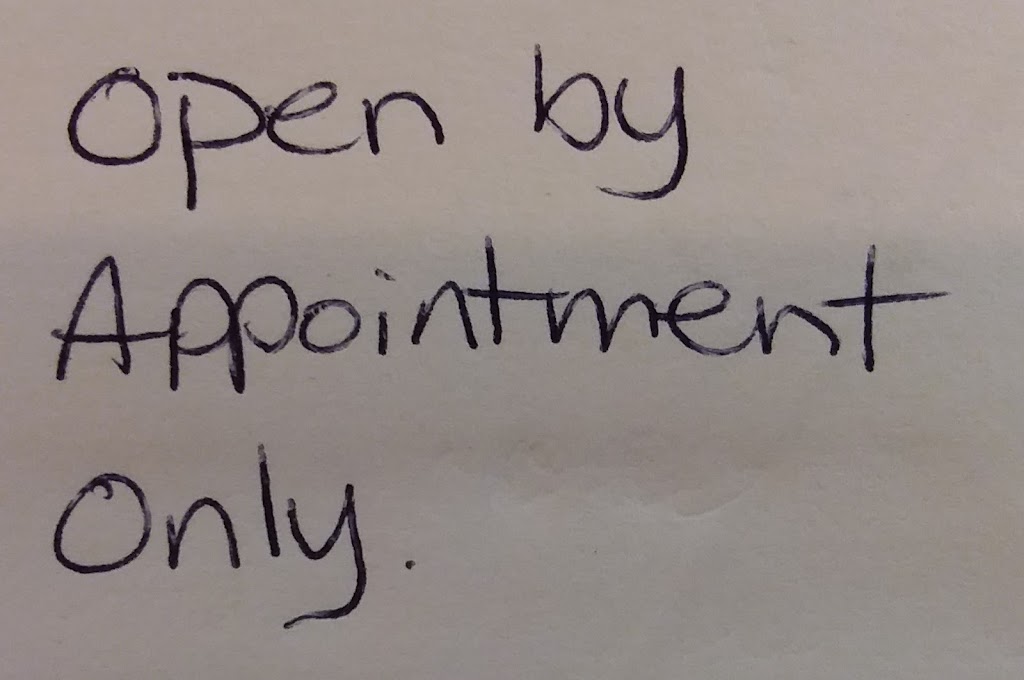 Open by
Appointment
Only.